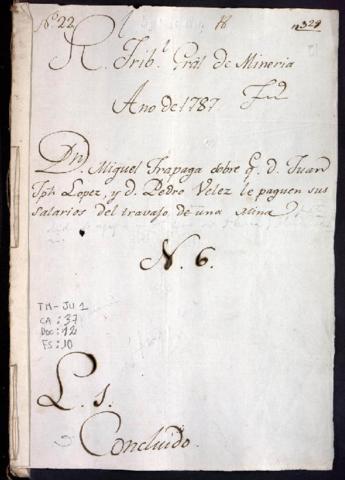 Nº 22
R. Tribˡ. Gral de Mineria
Ano de 1787
Dn. Miguel Trapaga sobre q. d. Juan
Jph Lopez, y d. Pedro Velez le paguen sus
salarios del travajo de una Mina
N. 6.
TM-JU 1
CA: 37
DOC: 12
FS: 10
L. 1.
Concluido.